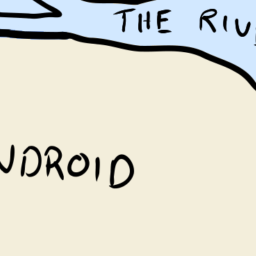 THE RIV
NDROID